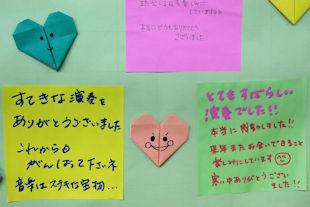 本当にどうもありがとう
ございました!
すてきな演奏を
ありがとうございました
これからも
がんばって下さいネ
音楽はステキな宝物…
とてもすばらしい
演奏でした!!
本当に感動しました!!
来年またお会いできること
楽しみにしています
寒い中ありがとうござい
ました!!